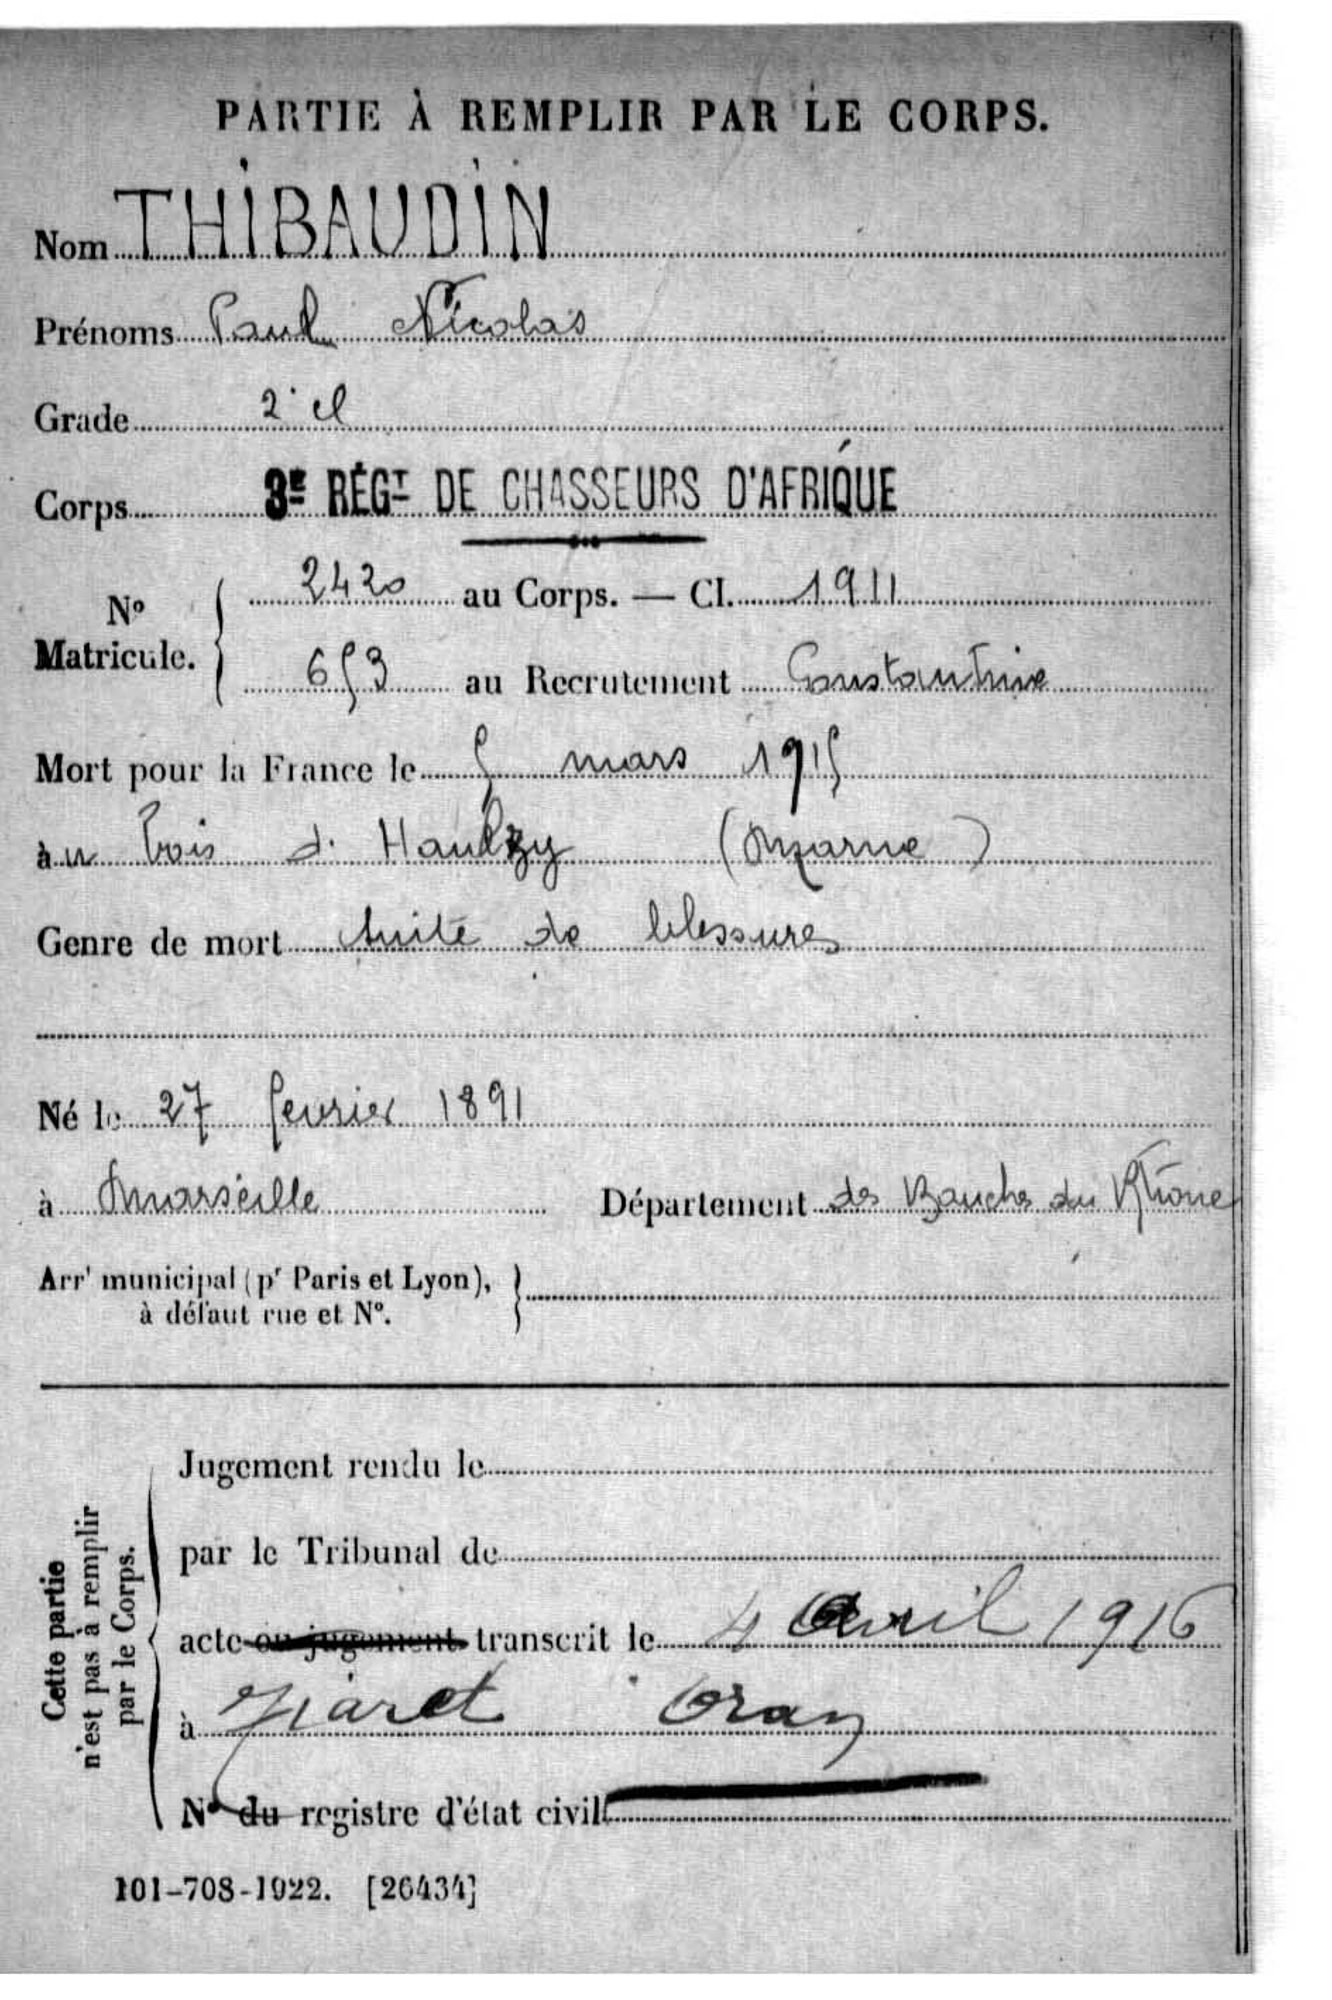 PARTIE À REMPLIR PAR LE CORPS.
Nom THIBAUDIN
Prénoms Paul Nicolas
Grade 2e cl
Corps 3E RÉGT DE CHASSEURS D'AFRIQUE
No Matricule. { 2420 au Corps. — Cl. 1911
653 au Recrutement Constantine
Mort pour la France le 5 mars 1915
àu bois d. Hauzy (Marne)
Genre de mort suite de blessures
Né le 27 fevrier 1891
à Marseille Département des Bouches du Rhône
Arrt municipal (pr Paris et Lyon), }
à défaut rue et No.
Cette partie
n'est pas à remplir
par le Corps.
Jugement rendu le
par le Tribunal de
acte ou jugement transcrit le 4 avril 1916
à Tiaret Oran
No du registre d'état civil
101-708-1922. [26434]